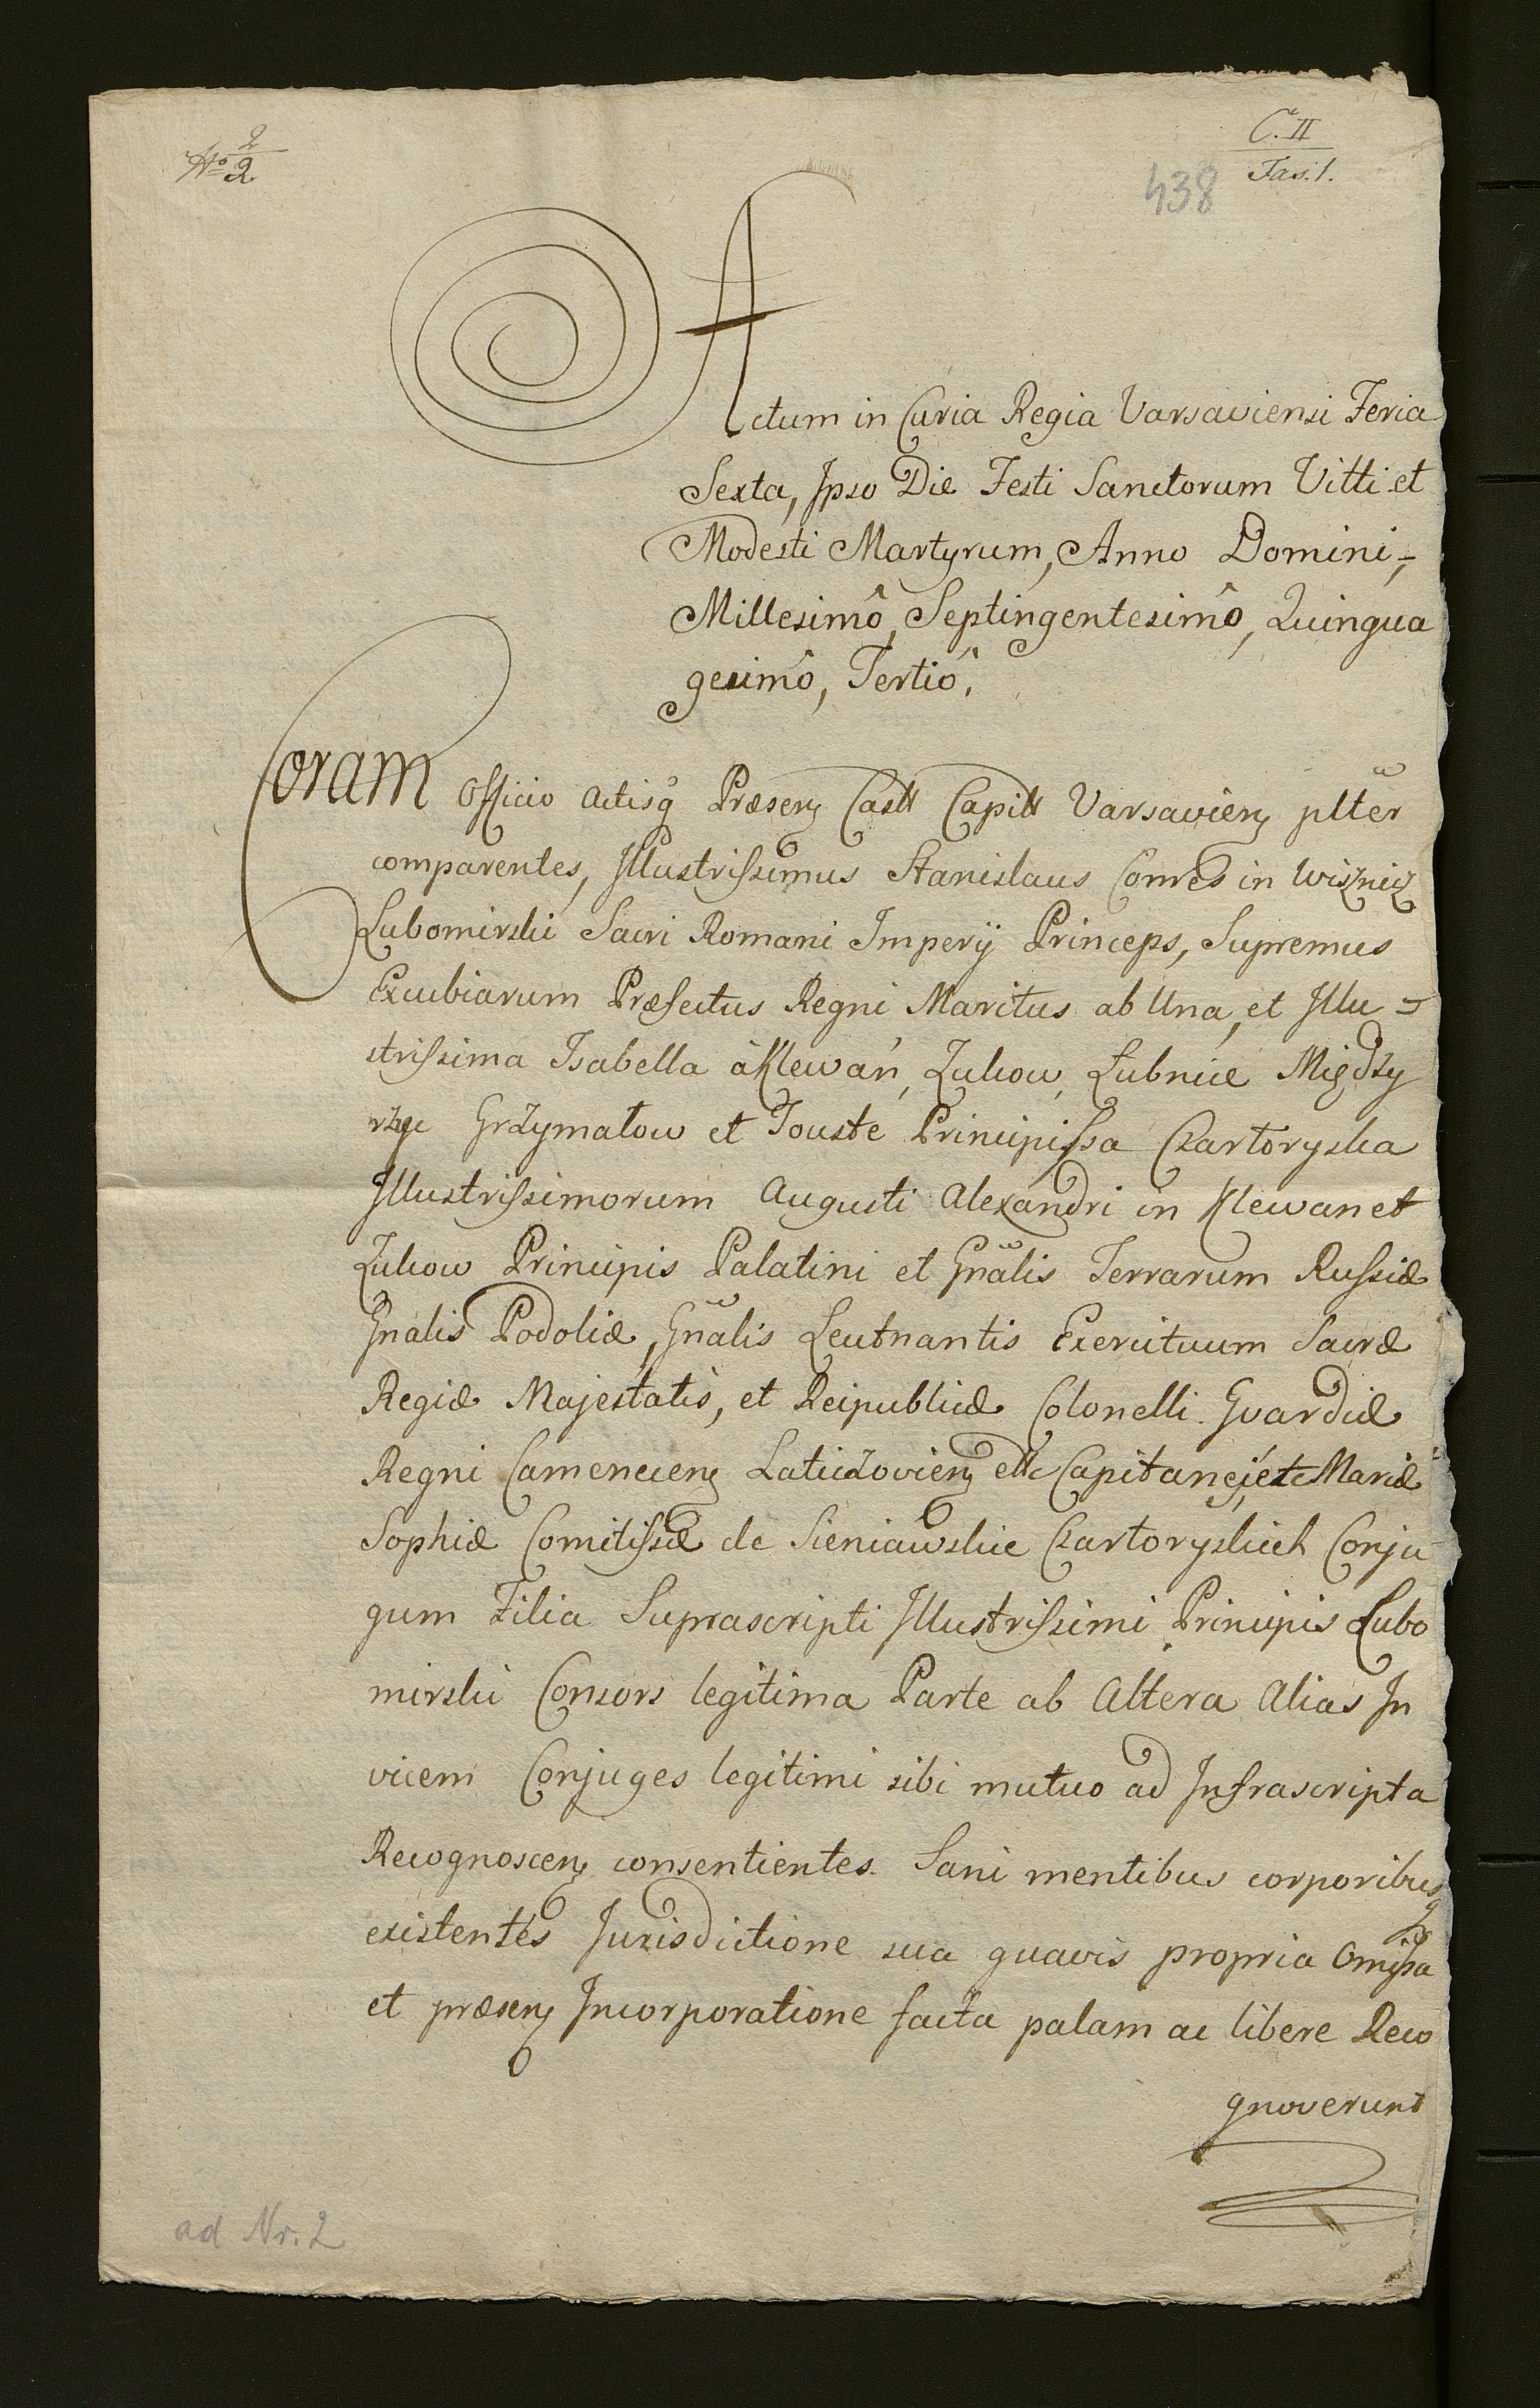 No 2/2
C. II
Fas. 1.
438
Actum in Curia Regia Varsaviensi Feria
Sexta, Ipso Die Festi Sanctorum Vitti et
Modesti Martyrum, Anno Domini,
Millesimô, Septingentesimô, Quinqua
gesimô, Tertiô.
Coram Officio Actisq Præsenz Castt Capitt Varsavienz pltter
comparentes, Illustrissimus Stanislaus Comes in Wisznicz
Lubomirski Sacri Romani Imperij Princeps, Supremus
Excubiarum Præfectus Regni Maritus ab Una, et Illu-
strissima Isabella à Klewań, Zukow, Łubnice Między
rzyc Grzymałow et Touste Principissa Czartoryska
Illustrissimorum Augusti Alexandri in Klewan et
Zukow Principis Palatini et Gnalis Terrarum Russiæ
Gnalis Podoliæ, Gnalis Leutnantis Exercituum Sacræ
Regiæ Majestatis, et Reipublicæ Colonelli Gvardiæ
Regni Camenecenz Laticzovienz etc Capitanei, et Mariæ
Sophiæ Comitissæ de Sieniawskie Czartoryskich Conju
gum Filia Suprascripti Illustrissimi Principis Lubo
mirski Consors legitima Parte ab Altera Alias In
vicem Conjuges legitimi sibi mutuo ad Infrascripta
Recognoscenz consentientes. Sani mentibus corporibusq
existentes Jurisdictione sua quavis propria Omissa
et præsenz Incorporatione facta palam ac libere Reco
gnoverunt
ad Nr. 2